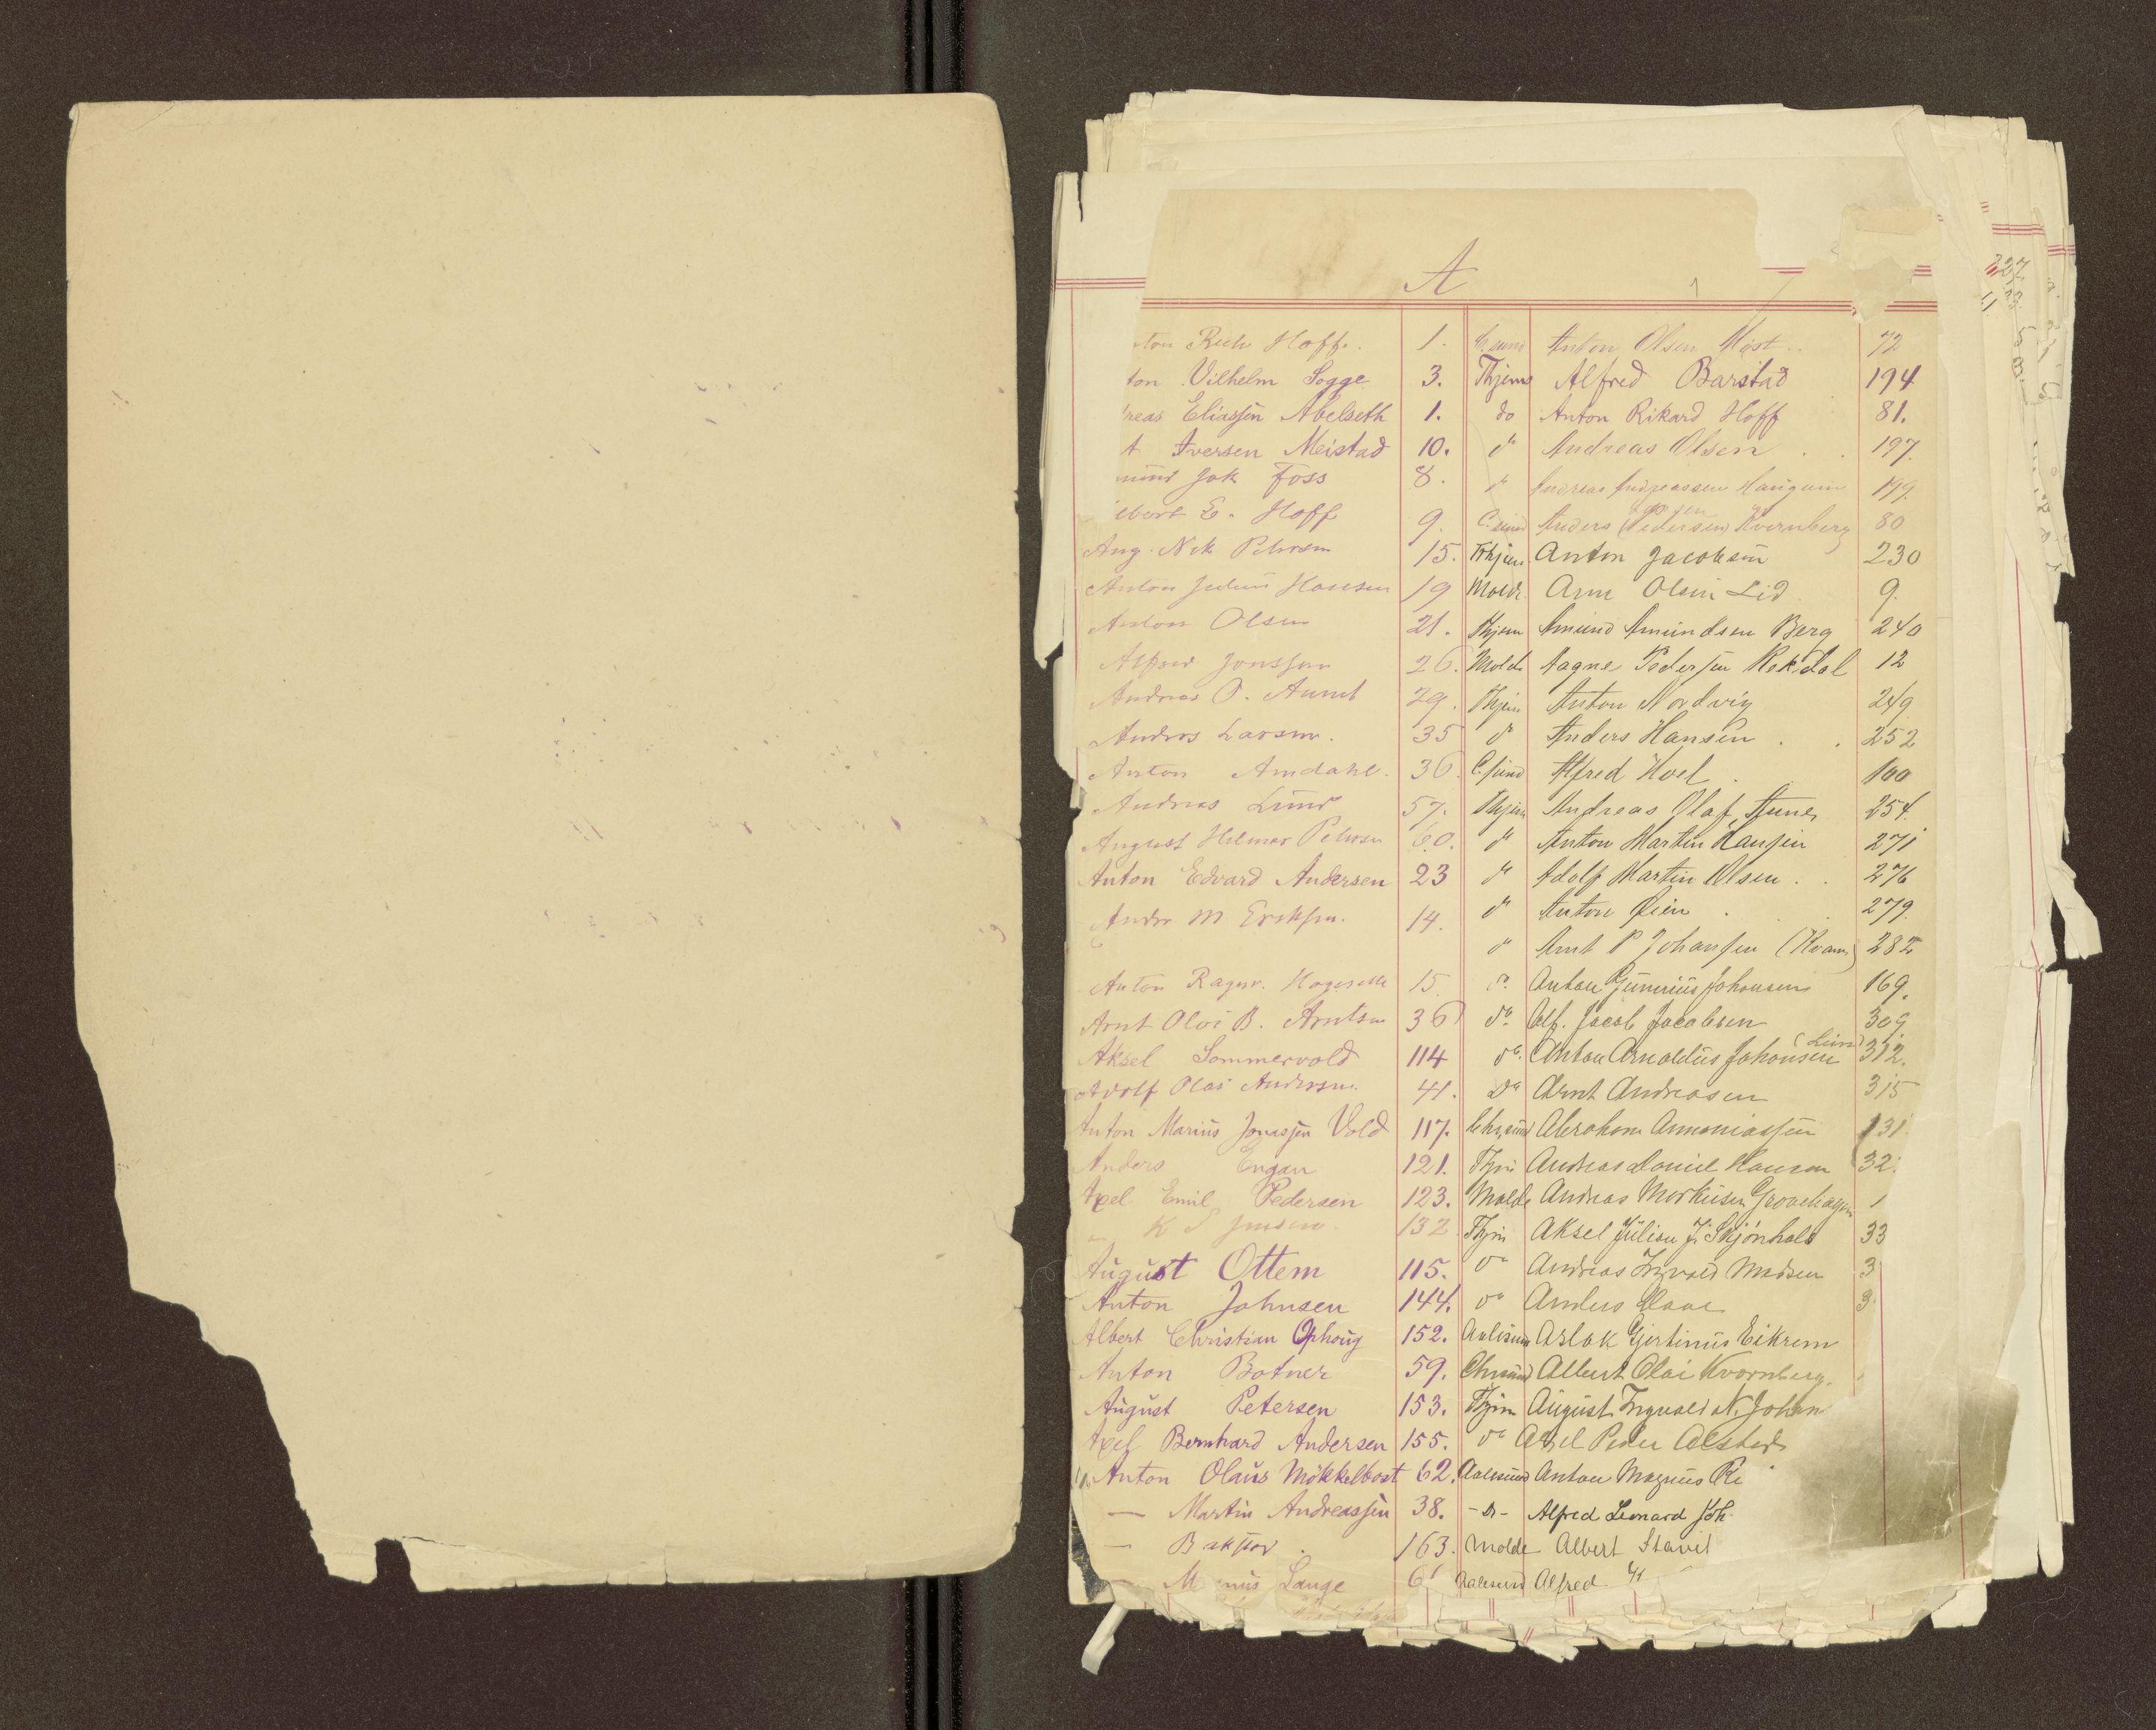 A
ton Rich Hoff. 1. C. sund Anton Olsen Myst 72
ton Vilhelm Sogge 3. Thjems Alfred Barstad 194
reas Eliassen Abelseth 1. do Anton Rikard Hoff 81.
t Iversen Meistad 10. do Andreas Olsen 197.
mund Jak Foss 8. do Andreas Andreassen Haugum 199.
lbert E. Hoff 9. C. sund Anders (Pedersen) Kvernberg 80
Aug. Nik Petersen 15. Trhjem Anton Jacobsen 230
Anton Julius Hansen 19 Molde Arne Olsen Lid 9.
Anton Olsen 21. Thjem Amund Amundsen Berg 240
Alfred Jonsson 26. Molde Aagne Pedersen Rekdal 12
Andreas O. Aunet 29. Thjem Anton Nordvig 249
Anders Larsen. 35 do Anders Hansen 252
Anton Amdahl. 36. C. sund Alfred Hoel 100
Andreas Lund 57. Thjem Andreas Olaf 254.
August Hilmar Petersen 60. do Anton Martin Hansen 271
Anton Edvard Andersen 23 do Adolf Martin Olsen 276
Andr M Eriksen. 14. do Anton Øien 279.
do Arnt P Johansen (Kvam) 282
Anton Ragnv. 15 do Anton Gunerius Johansen 169.
Arnt Olai B. Arntsen 36 do Alf. Jacob Jacobsen 309
Aksel Sommervold 114 do Anton Arnoldus Johansen (Lund) 312.
Adolf Olai Andersen. 41. do Arnt Andreasen 315
Anton Marius Jonassen Vold 117. Chr, sund Abraham Annaniassen 131
Anders Engan 121. Thjm Andreas Daniel Hansen 32
Axel Emil Pedersen 123. Molde Andreas Markusen Grovehagen 1
K S Jensen. 132 Thjm Aksel Julian J. Skjønhals 33
August Ottem 115. do Andreas Ingvald Madsen 3
Anton Johnsen 144. do Anders Aaae 3
Albert Christian Ophoug 152. Aalesund Aslak Gjertinus Eikrem
Anton Botner 59. Chrsund Albert Olai Kvornberg.
August Petersen 153. Thjm August Ingvald N. Johan
Axel Bernhard Andersen 155. do Axel Peder Alstad
Anton Olaus Mökkelbost 62. Aalesund Anton Magnus Ri
— Martin Andreassen 38. - Do - Alfred Leonard Joh.
— Bakstad 163. Molde Albert Stavil
— M nus Lange 61 Aalesund Alfred